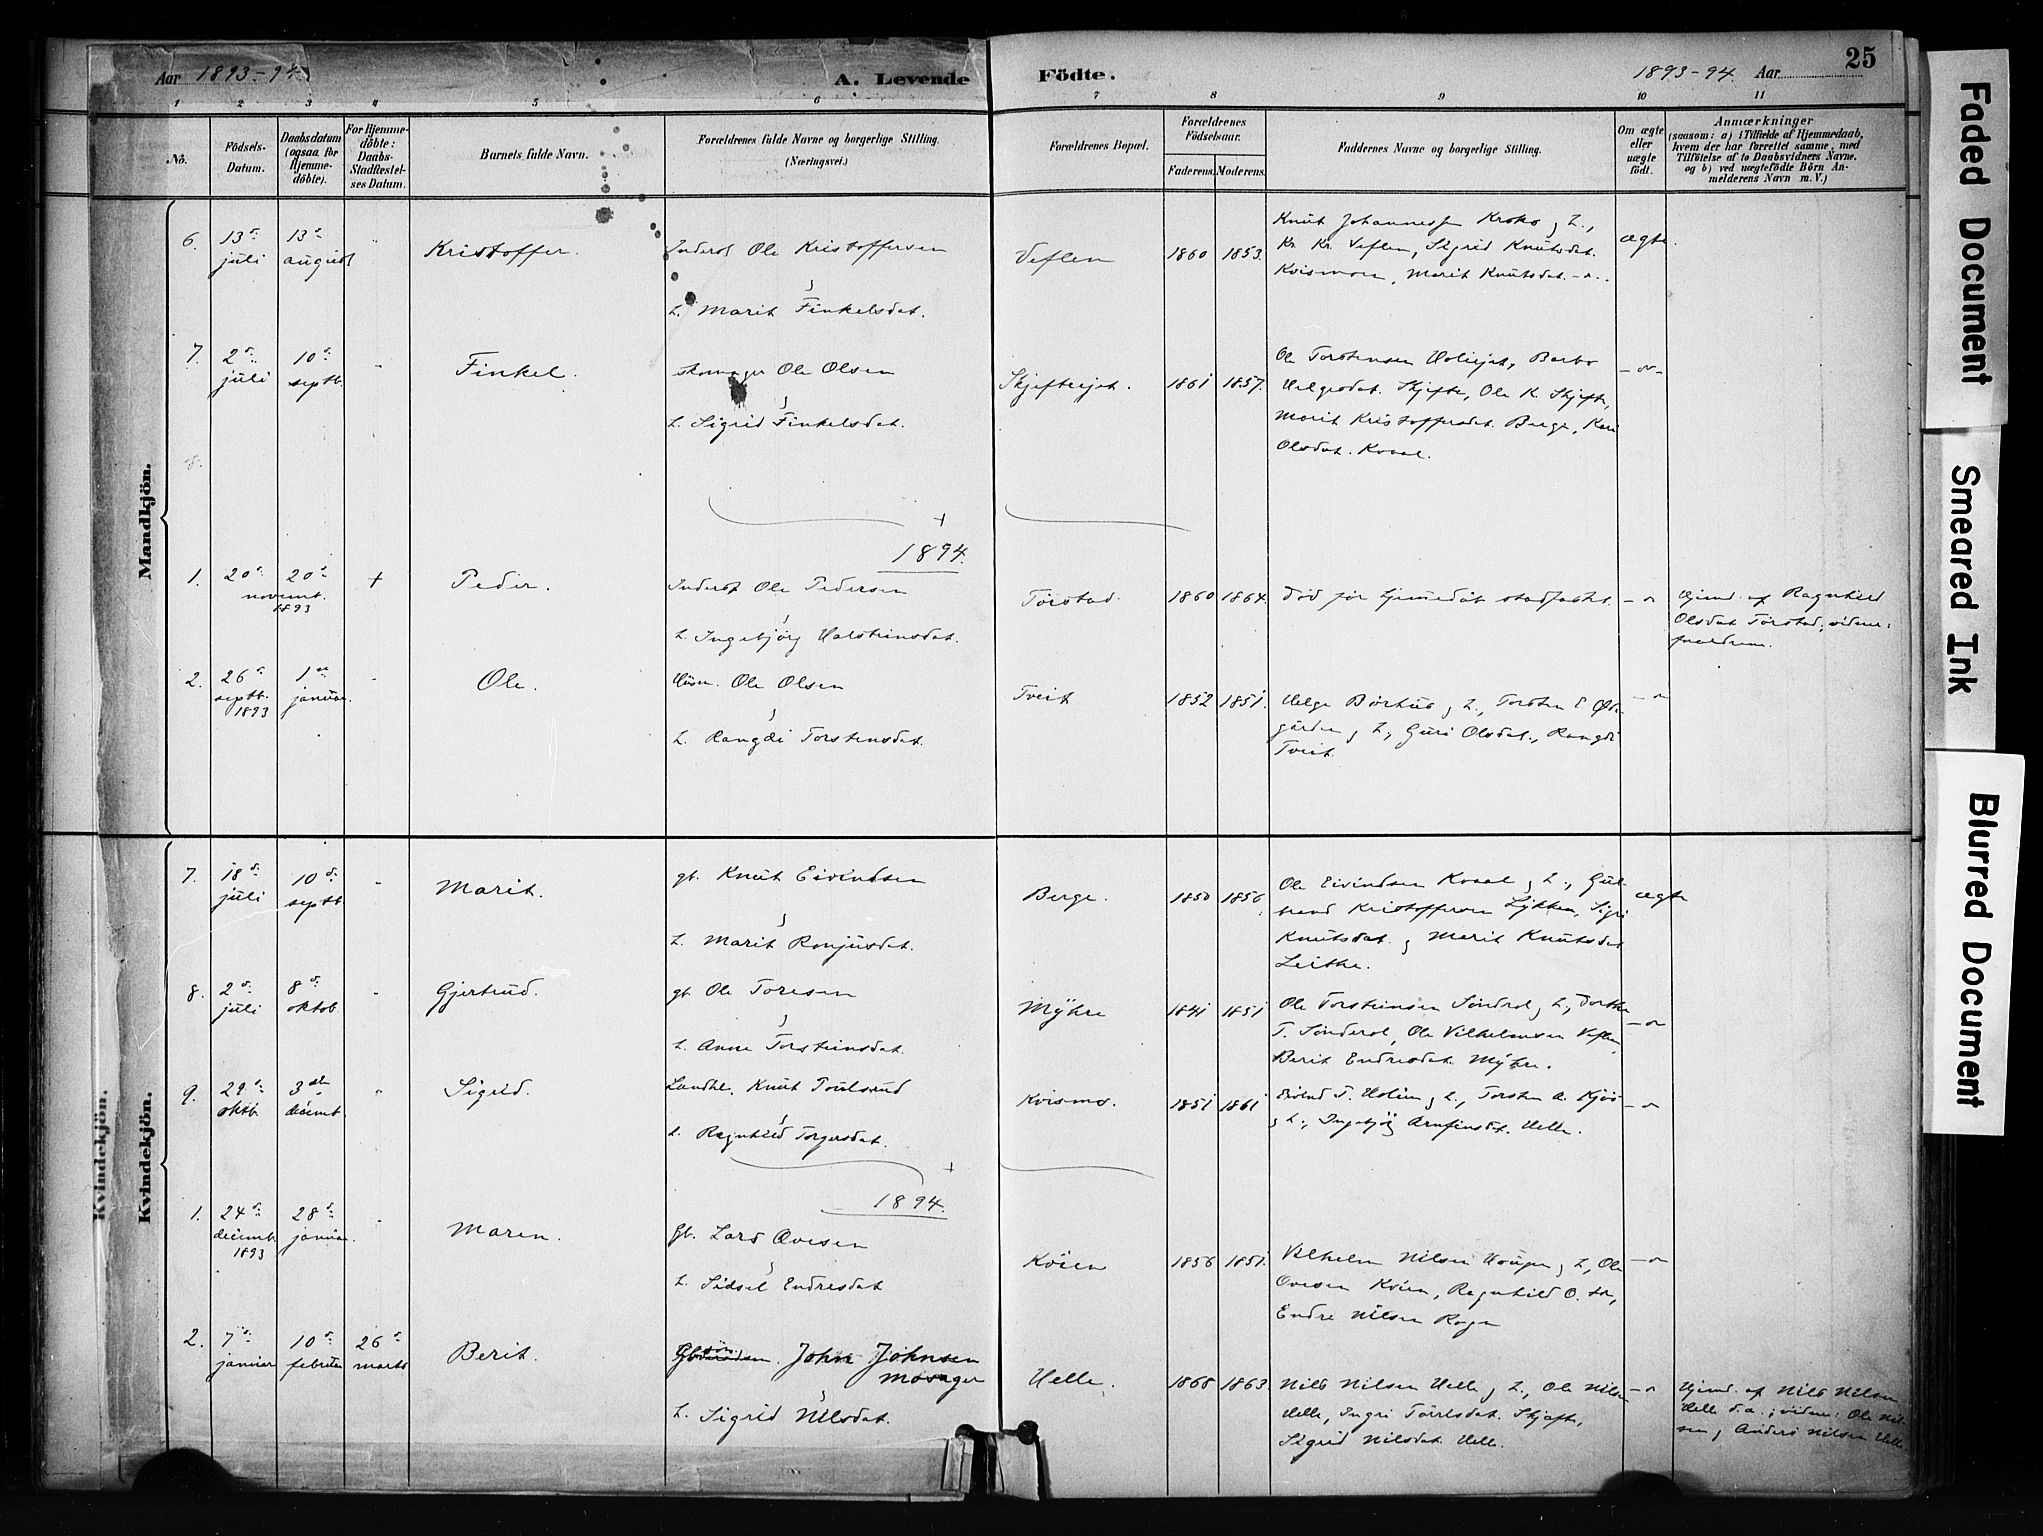 Aar 1893-94.
A. Levende Födte.
1893-94. Aar
25
1 2 3 4 5 6 7 8 9 10 11
No.
Födsels-Datum.
Daabsdatum (ogsaa for Hjemme-döbte).
For Hjemme-döbte: Daabs-Stadfæstel-ses Datum.
Barnets fulde Navn.
Forældrenes fulde Navne og borgerlige Stilling.
(Næringsvei.)
Forældrenes Bopæl.
Forældrenes Födselsaar.
Faderens. Moderens.
Faddernes Navne og borgerlige Stilling.
Om ægte eller uægte födt.
Anmærkninger
(saasom: a) i Tilfælde af Hjemmedaab,
hvem der har forrettet samme, med
Tilföielse af to Daabsvidners Navne.
og b) ved uægtefödte Börn An-
melderens Navn m. V.)
Mandkjön.
6. 13de juli 13de august " Kristoffer. Inderst Ole Kristoffersen
& h. Marit Finkelsdat. Veflen 1860 1853.
Knut Johannessen Kroko & h.,
Kr. Kr. Veflen, Sigrid Knutsdat.
Kvismoen, Marit Knutsdat. -"-.
ægte.
7. 2de juli 10de septb. " Finkel. skomager Ole Olsen
& h. Sigrid Finkelsdat. Skjefteejet. 1861 1857.
Ole Torstensen Holiejet, Barbo
Helgesdat. Skjefte, Ole K. Skjefte,
Marit Kristoffersdat. Berge, Kari
Olsdat. Kvaal.
-"-
8.
1894.
1. 20de 20de novemt. 1893 + Peder. Inderst Ole Pedersen
& h. Ingebjörg Halsteinsdat. Törstad. 1860 1864.
Död för hjemedåb stadfæstet. -"-
Hjemd. af Ragnhild
Olsdat. Törstad; vidner:
forældrene.
2. 26de septb. 1893 1ste januar. " Ole. Husm. Ole Olsen
& h. Rangdi Torstensdat. Tveit 1852 1851.
Helge Börhus & h., Torsten E. Øst-
gården & h., Guri Olsdat., Rangdi
Tveit.
-"-
Kvindekjön.
Kvindekjön.
7. 18de juli 10de septb. " Marit. gb. Knut Eivindsen
& h. Marit Ronjusdat. Berge. 1850 1856.
Ole Eivindsen Kvaal & h., Gul-
brand Kristoffersen Lykken, Sigri
Knutsdat. & Marit Knutsdat.
Leithe.
ægte
8. 2de juli 8de oktob. " Gjertrud. gb. Ole Toresen
& h. Anne Torsteinsdat. Myhre 1841 1851
Ole Torsteinsen Söndrol & h., Dorthe
T. Sönderol, Ole Vilhelmsen Veflen,
Berit Endresdat. Myhre.
-"-
9. 29de oktb. 3die decemb. " Sigrid. Landhl. Knut Poulsrud
& h. Ragnhild Torgersdat. Kvismo. 1851 1861
Eivind T. Holien & h., Torsten A. Kjös
& h., Ingebjörg Arnfinsdt. Helle.
-"-
1894.
1. 24de decemb. 1893 28de januar. " Maren. Gb. Lars Ovesen
& h. Sidsel Endresdat Kvien 1856 1851.
Vilhelm Nilsen Hougen & h., Ole
Ovesen Kvien, Ragnhild O. do,
Endre Nilsen Rogn
-"-
2. 7de januar 10de februar 26de marts Berit. John Johnsen
Mosager
& h. Sigrid Nilsdat. Helle. 1868 1863.
Nils Nilsen Helle & h., Ole Nilsen
Helle, Ingri Törrisdat. Skjefte,
Sigrid Nilsdat. Helle.
-"-
Hjemd. af Nils Nilsen
Helle d.a.; vidner: Ole Nil-
sen & Anders Nilsen Helle.
Faded Document
Smeared Ink
Blurred Document